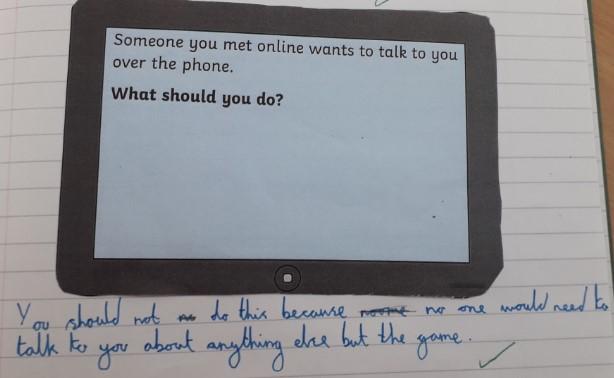 Someone you met online wants to talk to you
over the phone.
What should you do?
You should not do this because no one would need to
talk to you about anything else but the game.